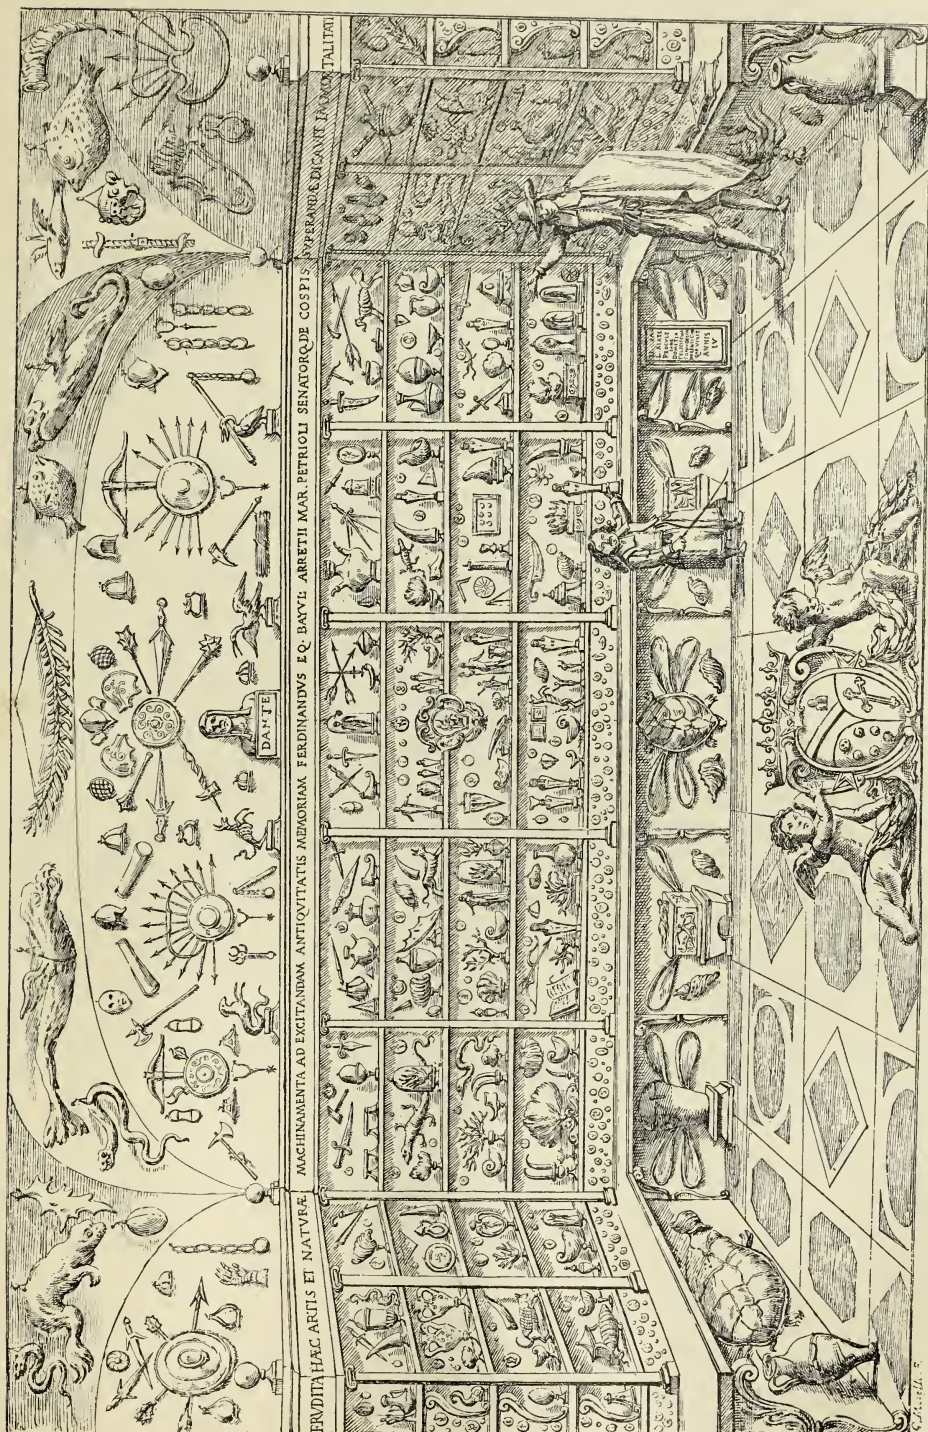 ERVDITA HÆC ARTIS ET NATVRÆ MACHINAMENTA AD EXCITANDAM ANTIQVITATIS MEMORIAM FERDINANDVS EQ. BAYVL. ARRETII MAR. PETRIOLI SENATORQ. DE COSPIS DICAVIT
DANTE